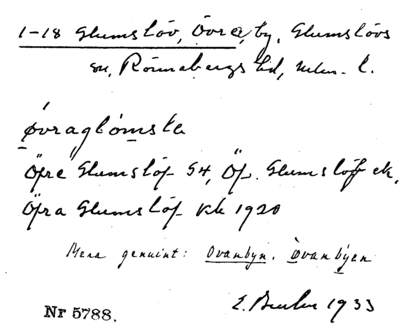 1-18 Glumslöv, Övre, by, Glumslövs
sn, Rönnebergs hd, Malm. l.
øvraglömsta
Öfre Glumslöf GH, Öf. Glumslöf ek,
Öfra Glumslöf Kk 1920
Mera genuint: Ovanbyn, Ovanbyen
1933
Nr 5788.